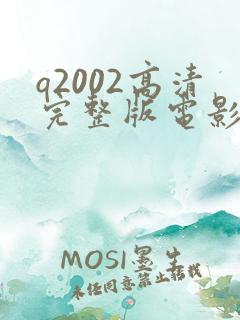 q2002高清
完整版电影
MOSI墨生
未经同意禁止搭载